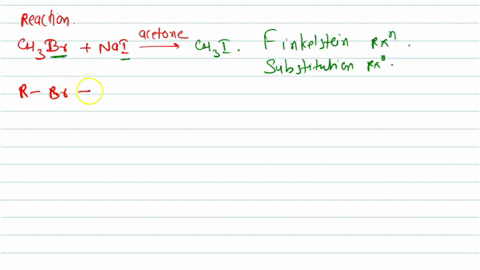 Reaction.
CH3Br + NaI acetone → CH3I. Finkelstein Rxn.
Substitution Rxn.
R - Br -